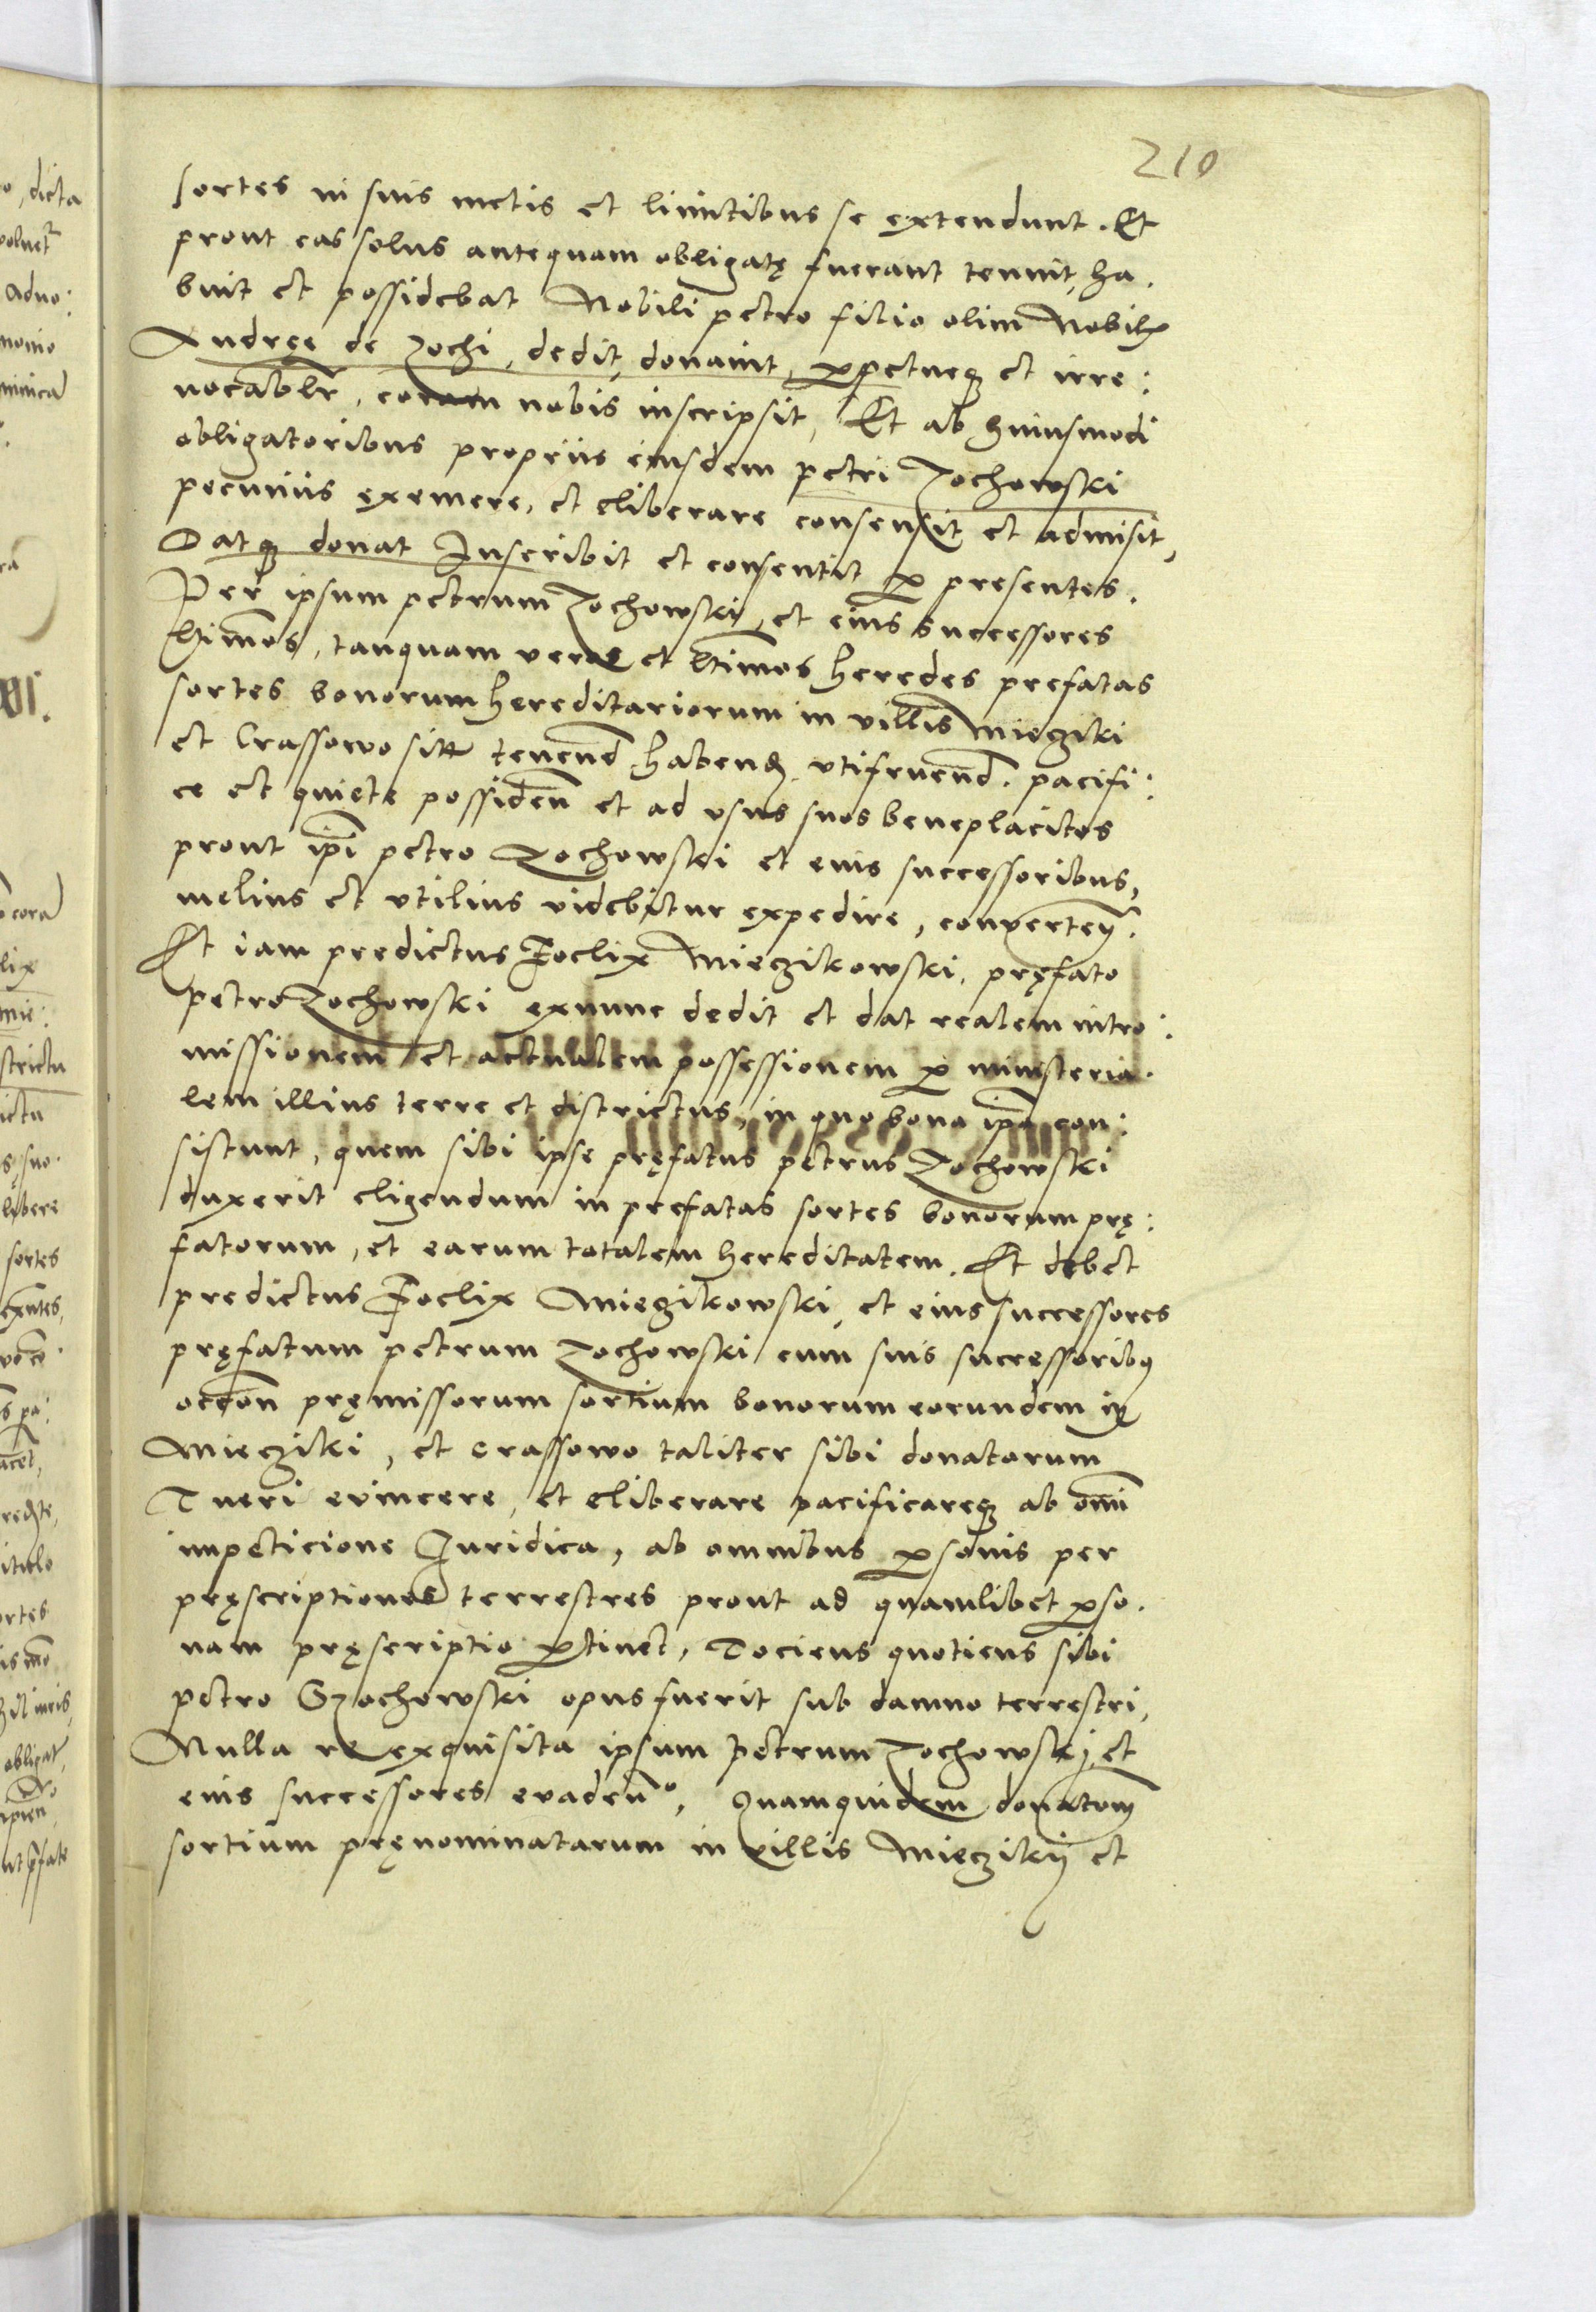 210
sortes in suis metis et limitibus se extendunt. Et
prout eas solus antequam obligatę fuerant tenuit, ha.
buit et possidebat Nobili petro filio olim Nobil
Andręe de Zochi, dedit, donauit, ꝑpetueqꝫ et irre:
uocablr̄, coram nobis inscripsit, Et ab huiusmodi
obligatoribus propriis eiusdem petri Zochowski
pecuniis exemere, et eliberare consensit et admisit,
Datqꝫ donat Inscribit et consentit ꝑ presentes.
Per ipsum petrum Zochowski, et eius successores
ltīmos, tanquam veros et ltīmos heredes prefatas
sortes bonorum hereditariorum in villis Miecziki
et Crassowo sitt tenend̄ habend̄. vtifruend̄. pacifi:
ce et quiete possiden̄ et ad vsus suos beneplacitos
prout ip̄i petro Zochowski et eius successoribus,
melius et vtilius videbitur expedire, conuerten̄.
Et iam predictus Foelix Mieczikowski, pręfato
petro Zochowski exnunc dedit et dat realem intro:
missionem et actualem possessionem ꝑ ministeria.
lem illius terre et districtus, in quo bona ip̄a con:
sistunt, quem sibi ipse pręfatus petrus Zochowski
duxerit eligendum in prefatas sortes bonorum prę:
fatorum, et earum totalem hereditatem. Et debet
predictus Foelix Mieczikowski, et eius successores
pręfatum petrum Zochowski cum suis successoribꝫ
occōn pręmissorum sortium bonorum eorundem in
Mieczilki, et Crassowo taliter sibi donatorum
Tueri euincere, et eliberare pacificareqꝫ ab omī
impeticione Iuridica, ab omnibus ꝑsonis per
pręscriptiones terrestres prout ad quamlibet ꝑso.
nam pręscriptio ꝑtinet, Tociens quotiens sibi
petro Szochowski opus fuerit sub damno terrestri,
Nulla re exquisita ipsum Petrum Zochowski, et
eius successores euaden̄º, Quamquidem donatōm̄
sortium pręnominatarum in villis Mięczikij et